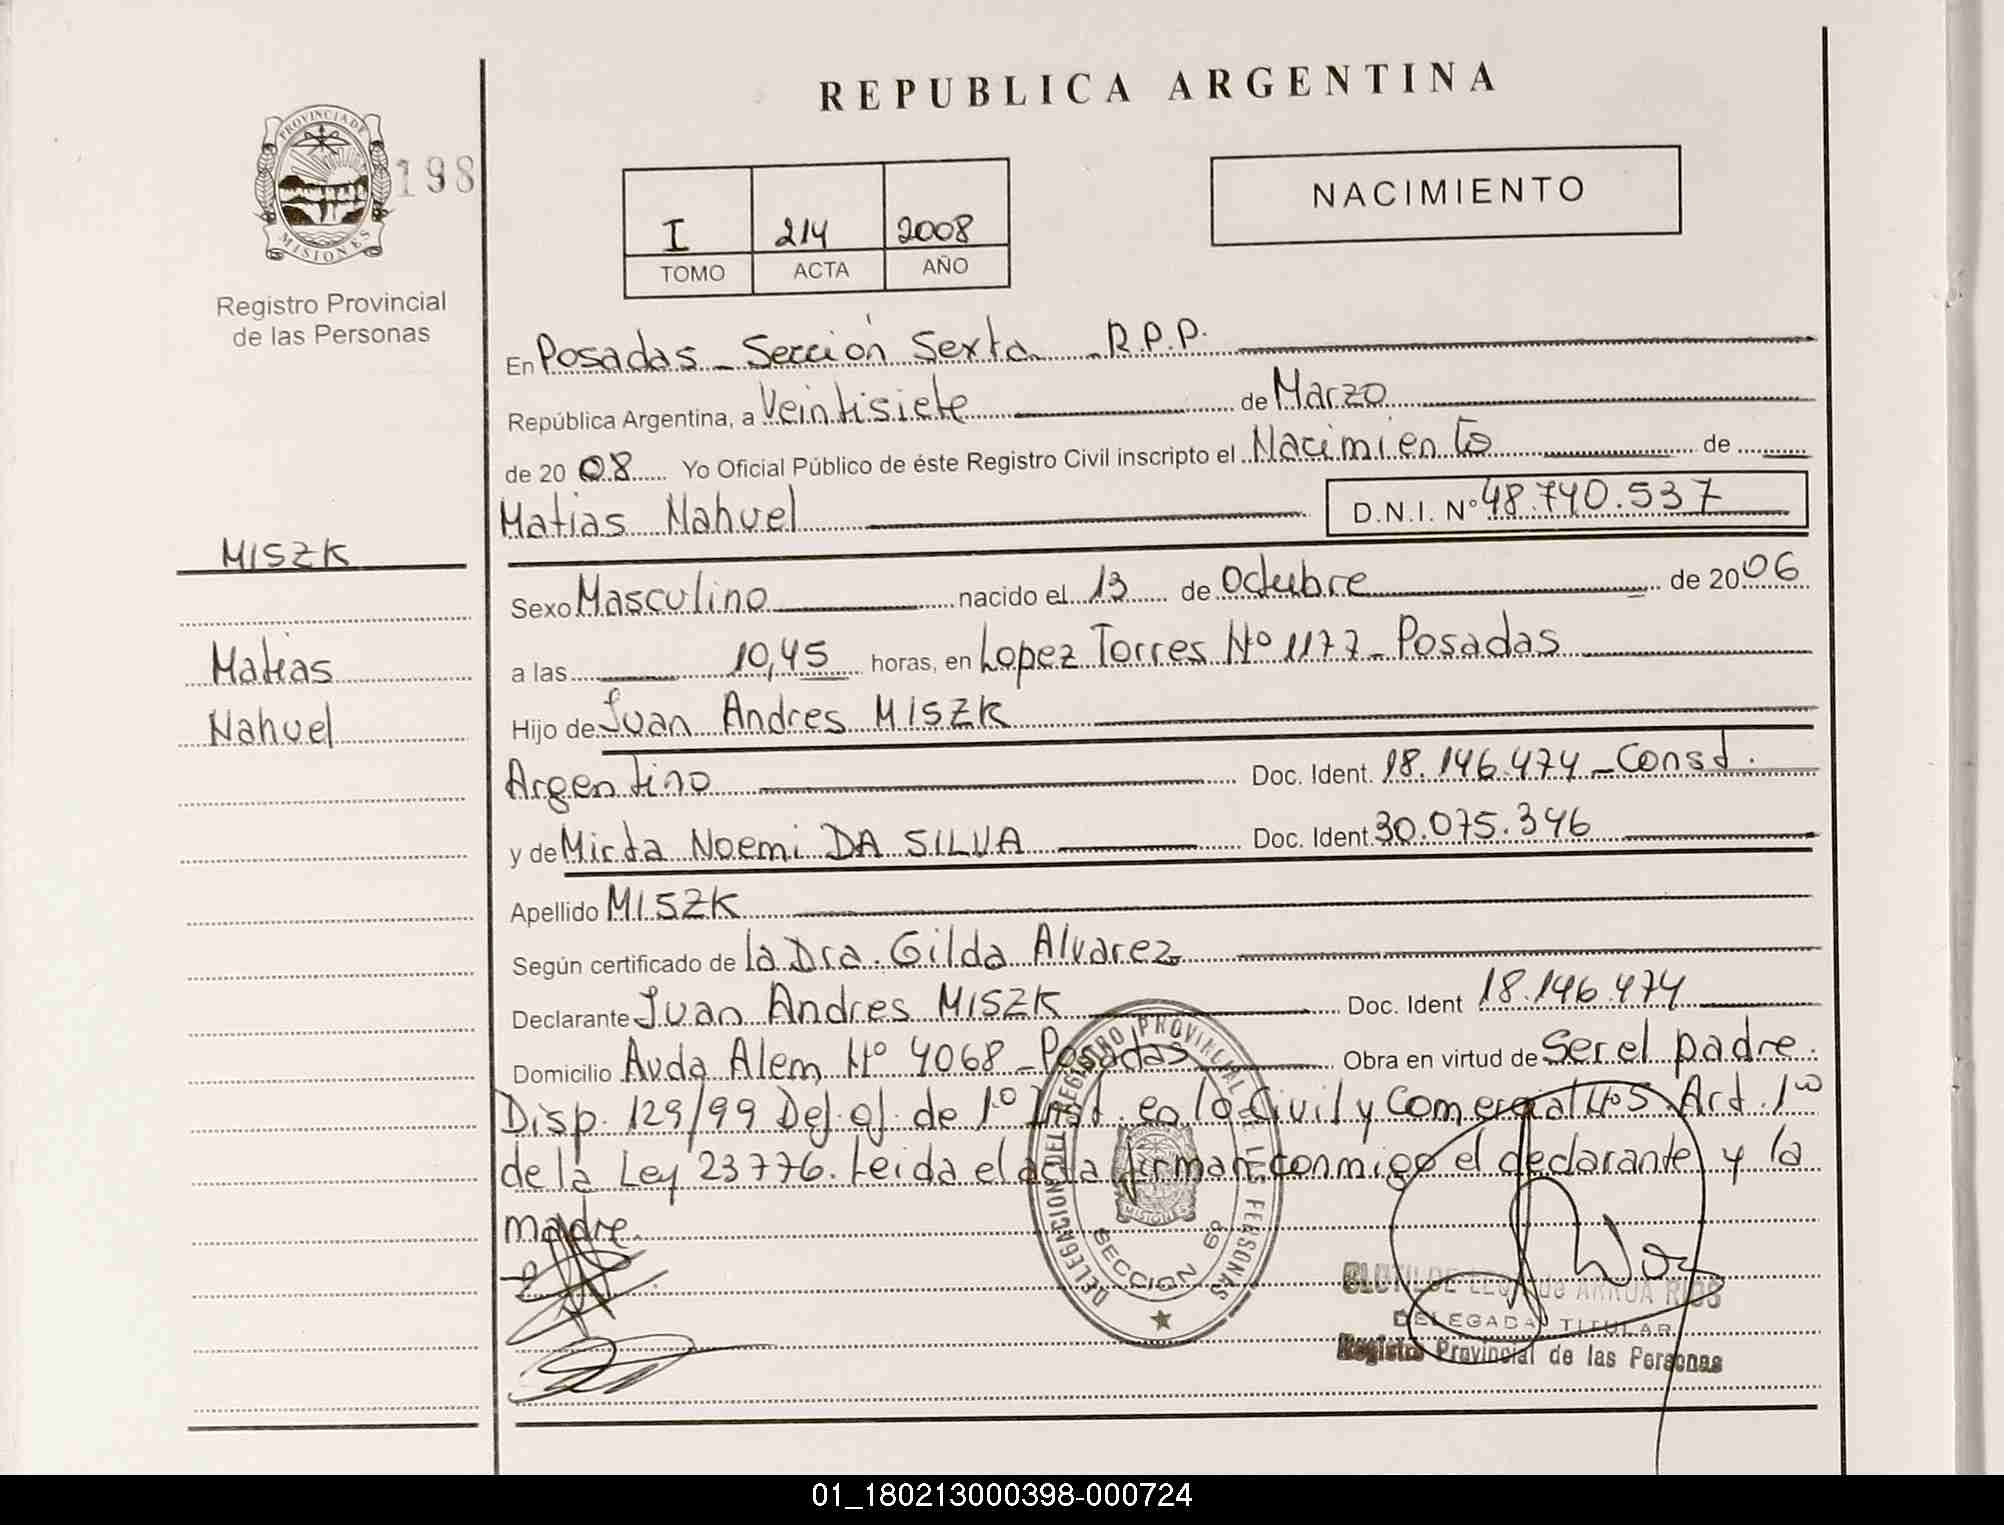 REPUBLICA ARGENTINA
PROVINCIA DE
MISIONES
198
Registro Provincial
de las Personas
I 214 2008
TOMO ACTA AÑO
NACIMIENTO
En Posadas - Sección Sexta - R.P.P.
República Argentina, a Veintisiete de Marzo
de 20 08 Yo Oficial Público de éste Registro Civil inscripto el Nacimiento de
Matias Nahuel D.N.I. Nº 48.740.537
MISZK
Sexo Masculino nacido el 13 de Octubre de 20 06
Matias
a las 10,45 horas, en Lopez Torres Nº 1177 - Posadas
Nahuel
Hijo de Juan Andres MISZK
Argentino Doc. Ident. 18.146.474 - Const.
y de Mirta Noemi DA SILVA Doc. Ident. 30.075.346
Apellido MISZK
Según certificado de la Dra. Gilda Alvarez
Declarante Juan Andres MISZK Doc. Ident 18.146.474
Domicilio Avda Alem Nº 4068 - Posadas Obra en virtud de Ser el padre.
Disp. 129/99 Def. of. de 1º Inst. en lo Civil y Comercial Nº5. Art. 1ro
de la Ley 23776. Leida el acta firman conmigo el declarante y la
madre.
DELEGACION DEL REGISTRO PROVINCIAL DE LAS PERSONAS
MISIONES
SECCION 6ª
CLOTILDE ARRUA RIOS
DELEGADA TITULAR
Registro Provincial de las Personas
01_180213000398-000724